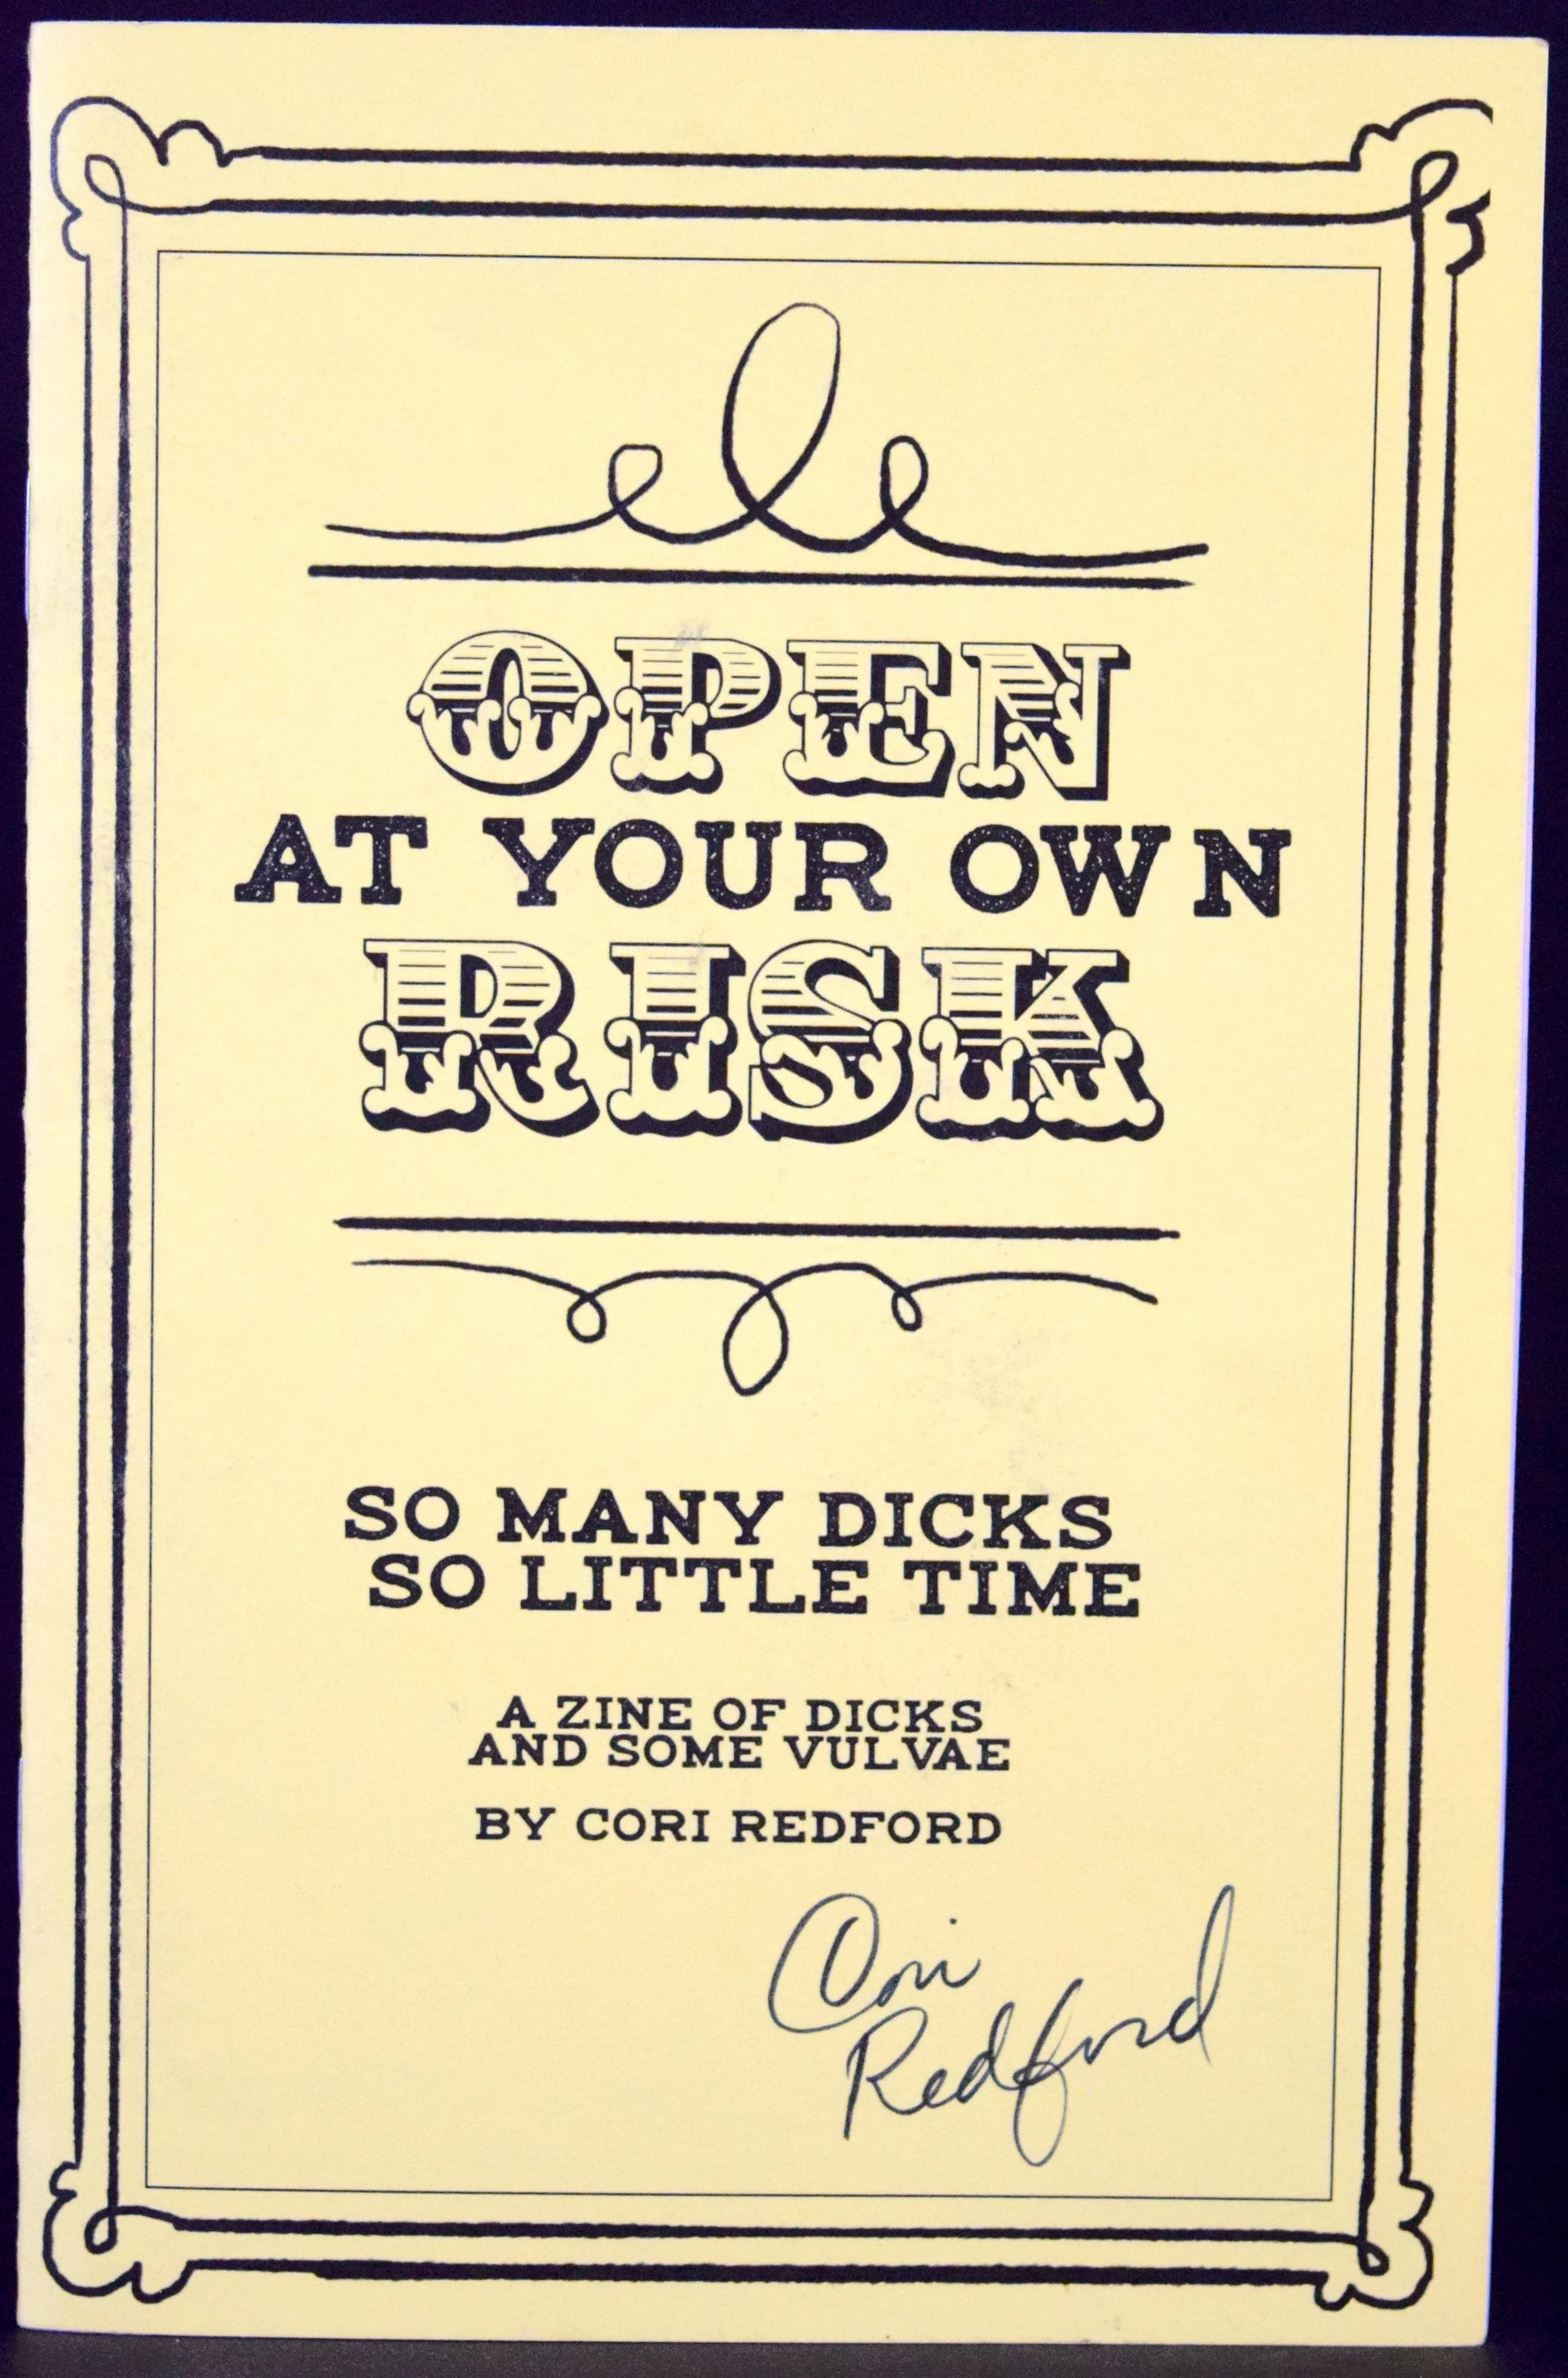 OPEN
AT YOUR OWN
RISK
SO MANY DICKS
SO LITTLE TIME
A ZINE OF DICKS
AND SOME VULVAE
BY CORI REDFORD
Cori
Redford